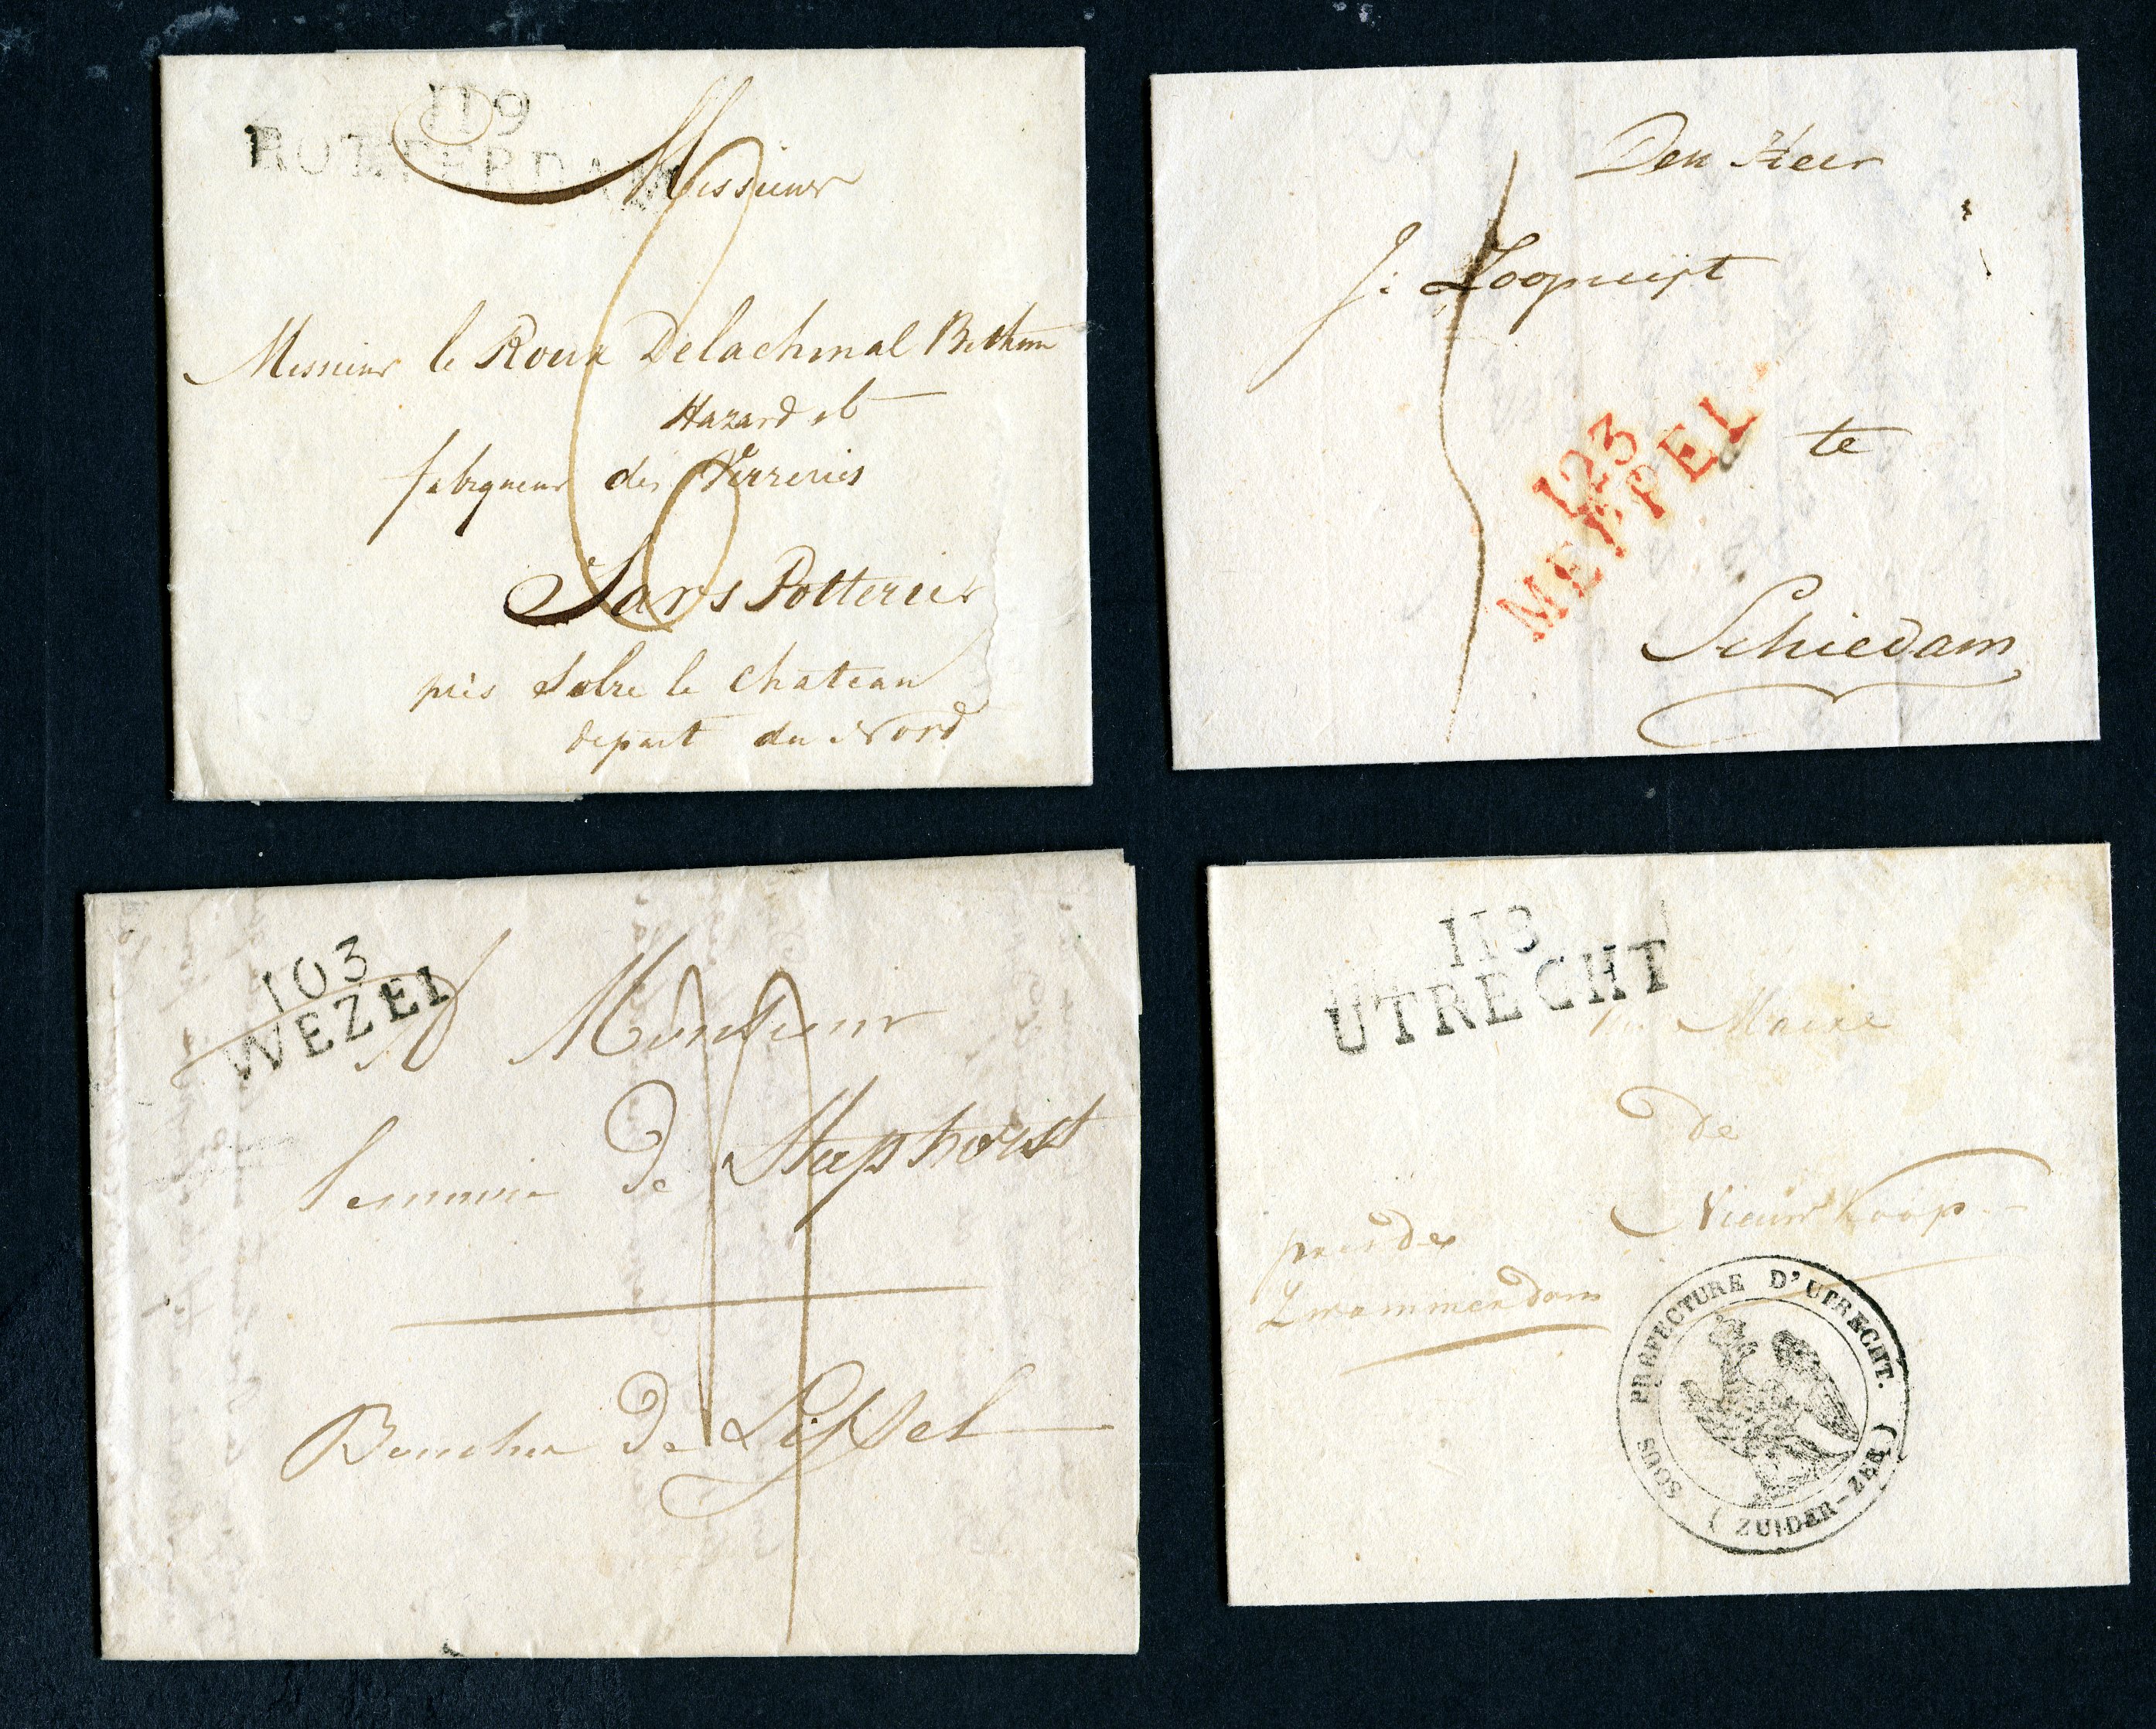 119
ROTTERDAM
Messieurs
6
Messieurs le Roux Delachmal
Hazard et
fabriqueurs des Verreries
Sars Potteries
près Solre le Chateau
depart du Nord
Den Heer
J:
te
123
MEPPEL
Schiedam
103
WEZEL
A Monsieur
de Staphorst
Boucher de
118
UTRECHT
Maire
de
Nieuwkoop
près de
Zwammerdam
SOUS PREFECTURE D'UTRECHT. (ZUIDER-ZEE)